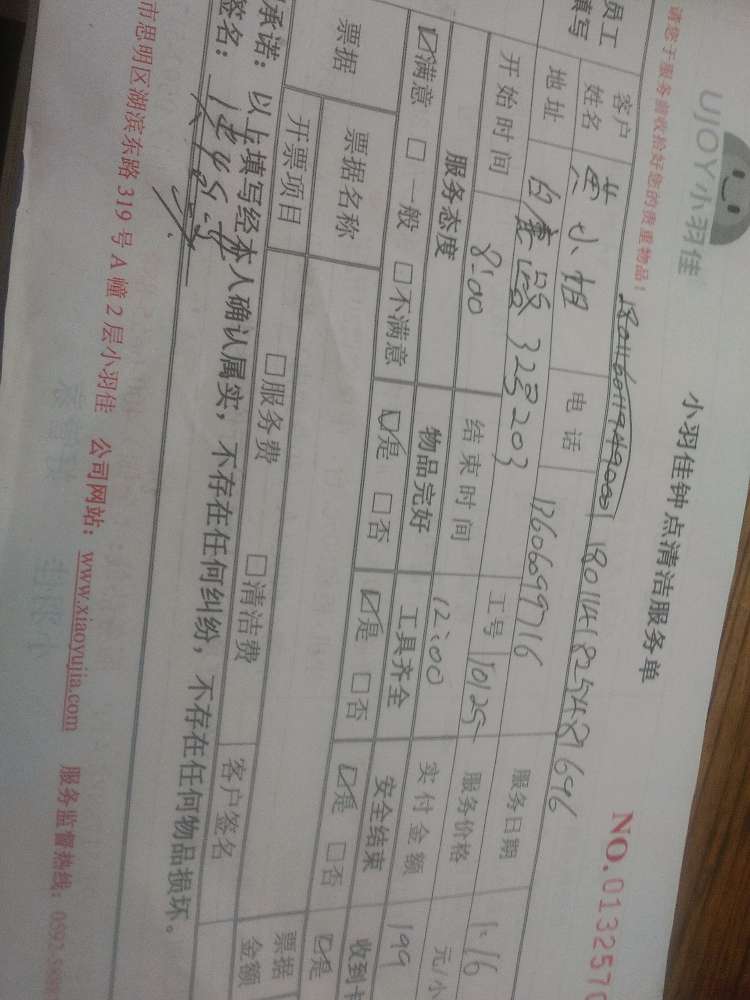 UJOY小羽佳
小羽佳钟点清洁服务单
NO.0132570
请您于服务前收拾好您的贵重物品！
1801141825481696
员工
填写
客户
姓名
黄小姐
电话
13606099716
服务日期
1.16
地址
白鹭路328 203
工号
10125
服务价格
元/小
开始时间
8:00
结束时间
12:00
实付金额
199
服务态度
物品完好
工具齐全
安全结束
收到卡
☑满意 □一般 □不满意
☑是 □否
☑是 □否
☑是 □否
☑是
票据
票据名称
票据
金额
开票项目
□服务费
□清洁费
客户签名
承诺：以上填写经本人确认属实，不存在任何纠纷，不存在任何物品损坏。
签名：
市思明区湖滨东路319号A幢2层小羽佳 公司网站：www.xiaoyujia.com 服务监督热线：0592-